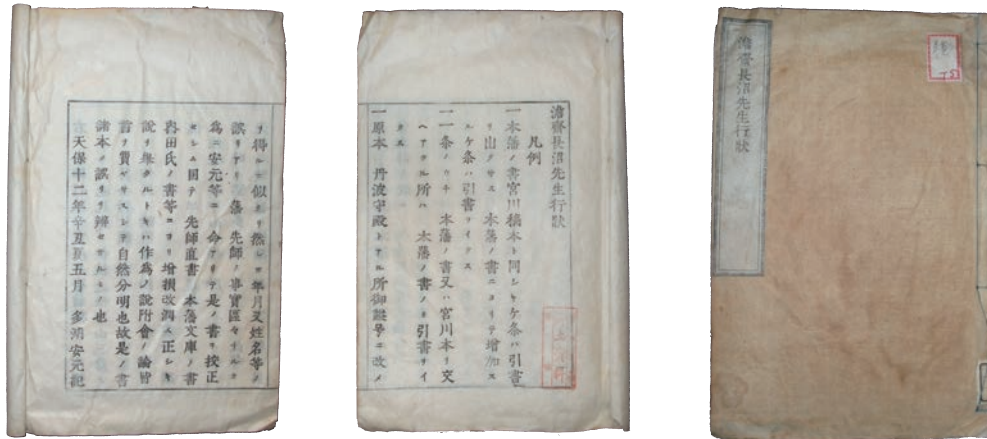 澹齋長沼先生行狀
澹齋長沼先生行狀
凡例
一本藩ノ書宮川橋本ト同シキケ条ハ引書
リ出タサス 本藩ノ書ニヨリテ増加ス
ルケ条ハ引書ヲイタス
一一条ノウチ 本藩ノ書又ハ宮川本ヲ交
ヘアクル所ハ 本藩ノ書ノミ引書ヲイ
タス
一原本 丹波守殿トアル所御諡号ニ改ム
ヲ得ルニ似タリ然レトモ年月又姓名等ノ
誤リアリ 藩 先師ノ事實區々ナルヲ
為ニ安元等ニ命アリテ是ノ書ヲ挍正
セシム因テ 先師直書 本藩文庫ノ書
田氏ノ書等ニヨリ増損改潤ス正シキ
説ヲ擧クルトキハ作為ノ説附會ノ論皆
言ヲ費サスシテ自然分明也故是ノ書
諸本ノ誤リ辨セサルモノ也
天保十二年辛丑夏五月 多湖安元記